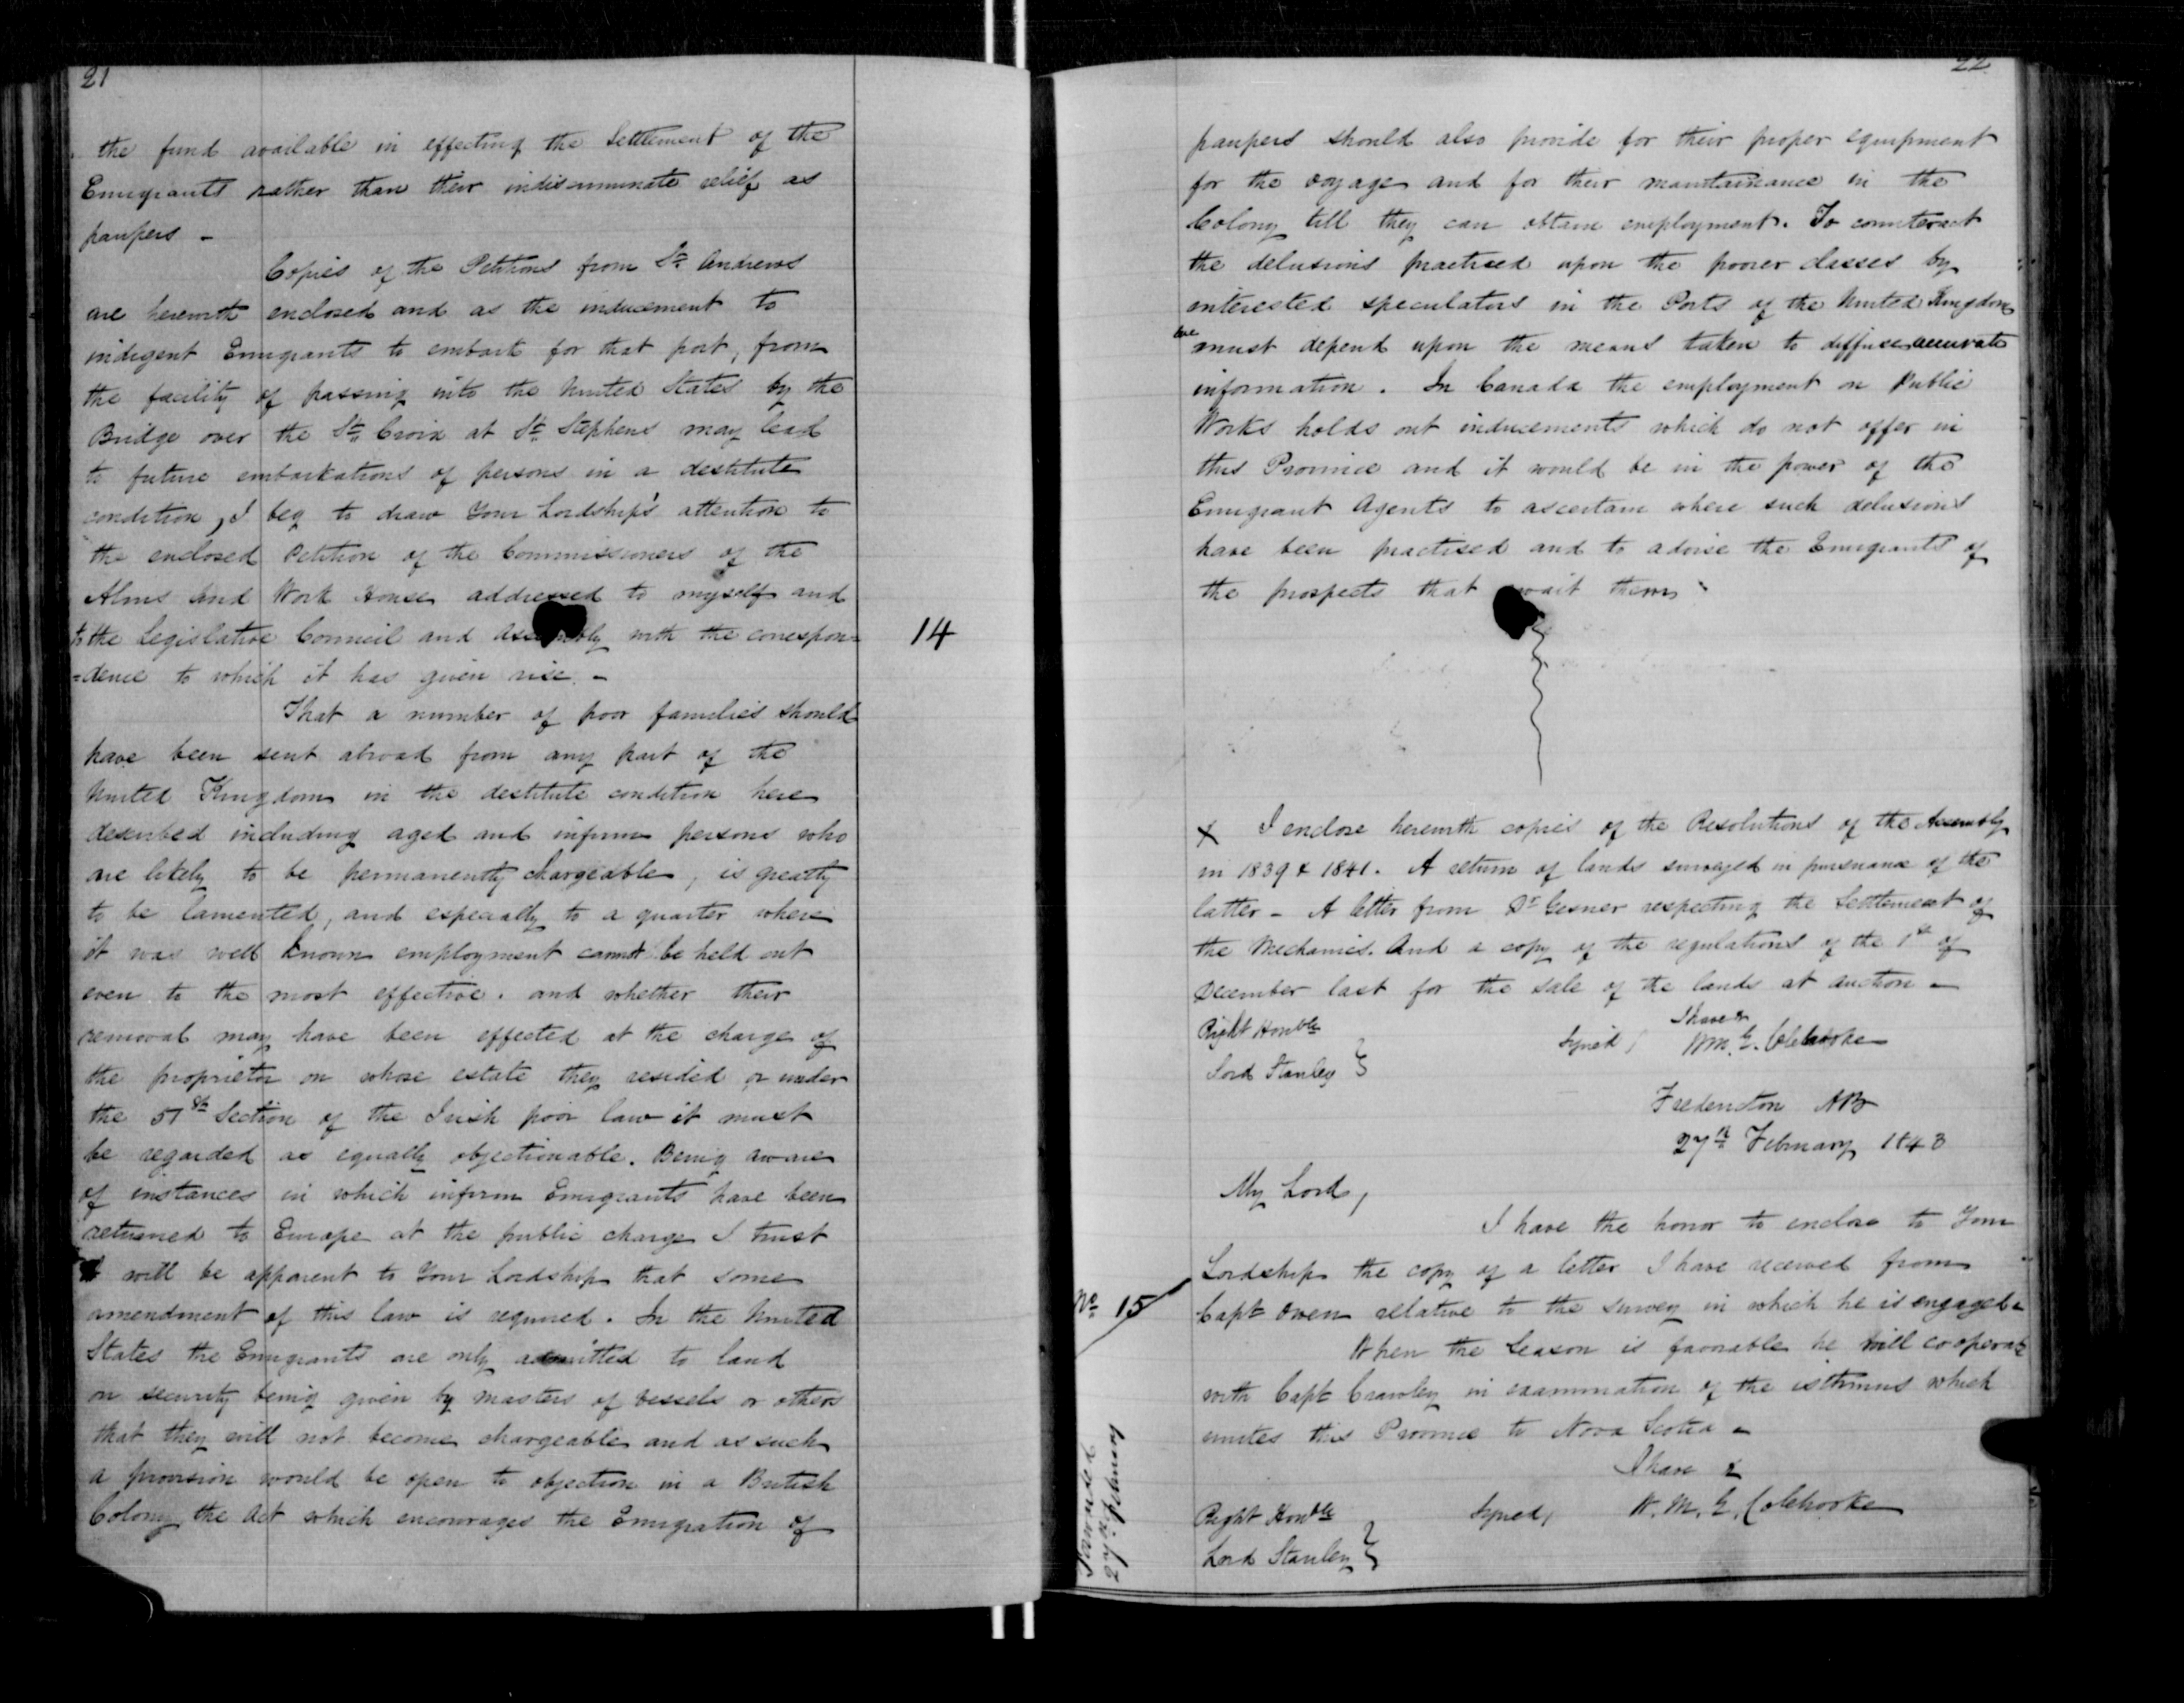 21
the fund available in effecting the Settlement of the
Emigrants rather than their indiscriminate relief as
paupers -
Copies of the Petitions from St. Andrews
are herewith enclosed and as the inducement to
indigent Emigrants to embark for that port, from
the facility of passing into the United States by the
Bridge over the St. Croix at St. Stephens may lead
to future embarkations of persons in a destitute
condition, I beg to draw Your Lordship's attention to
the enclosed Petition of the Commissioners of the
Alms and Work House addressed to myself and
to the Legislative Council and Assembly with the correspon=
=dence to which it has given rise. -
14
That a number of poor families should
have been sent abroad from any part of the
United Kingdom in the destitute condition here
described including aged and infirm persons who
are likely to be permanently chargeable, is greatly
to be lamented, and especially to a quarter where
it was well known employment cannot be held out
even to the most effective. and whether their
removal may have been effected at the charge of
the proprietor on whose estate they resided or under
the 51st Section of the Irish poor law it must
be regarded as equally objectionable. Being aware
of instances in which infirm Emigrants have been
returned to Europe at the public charge I trust
it will be apparent to Your Lordship that some
amendment of this law is required. In the United
States the Emigrants are only admitted to land
on security being given by masters of vessels or others
that they will not become chargeable and as such
a provision would be open to objection in a British
Colony the Act which encourages the Emigration of
22
paupers should also provide for their proper equipment
for the voyage and for their maintainance in the
Colony till they can obtain employment. To counteract
the delusions practised upon the poorer classes by
interested speculators in the Ports of the United Kingdom
we must depend upon the means taken to diffuse accurate
information. In Canada the employment on Public
Works holds out inducements which do not offer in
this Province and it would be in the power of the
Emigrant Agents to ascertain where such delusions
have been practised and to advise the Emigrants of
the prospects that await them -
X I enclose herewith copies of the Resolutions of the Assembly
in 1839 & 1841. A return of lands surveyed in pursuance of the
latter - A letter from Dr Gesner respecting the Settlement of
the Mechanics. And a copy of the regulations of the 1st of
December last for the sale of the lands at auction -
I have &
Right Honble
Signed, Wm. G. Colebrooke
Lord Stanley }
Fredericton NB
27th February 1843
My Lord,
I have the honor to enclose to Your
Lordship the copy of a letter I have received from
No 15
Capt Owen relative to the survey in which he is engaged -
When the Season is favorable he will cooperate
with Capt Crawley in examination of the isthmus which
unites this Province to Nova Scotia -
Forwarded
27th February
I have &
Right Honble
Signed, W. M. G. Colebrooke
Lord Stanley }